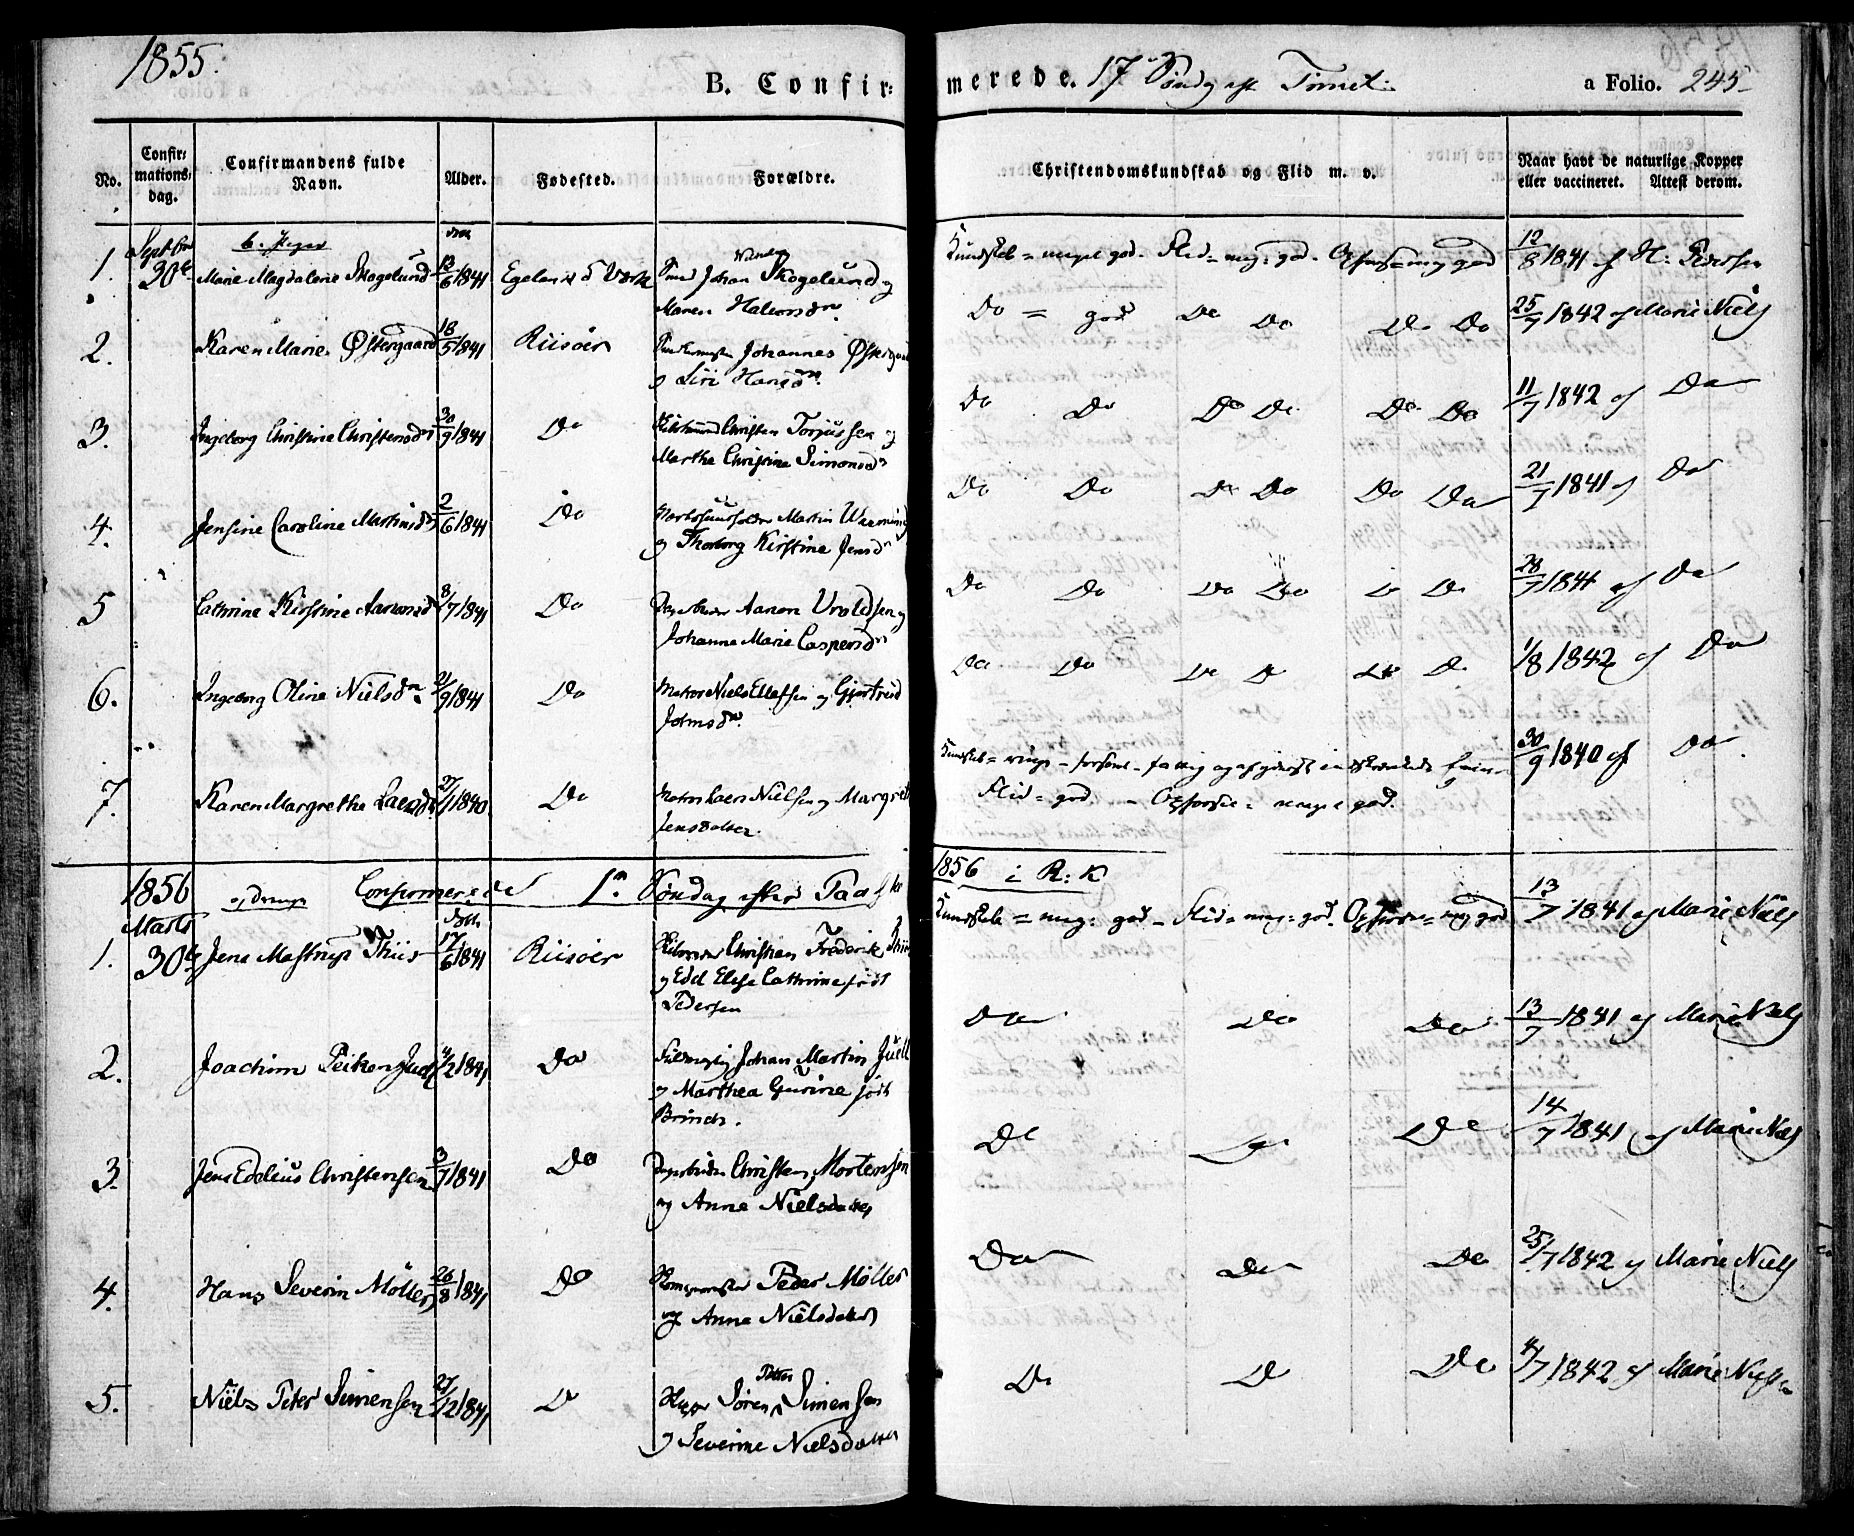 1855.
B. Confirmerede. 17 Søndag eft Trinit:
a Folio. 245
No.
Confirmationsdag.
Confirmandens fulde Navn.
Alder.
Fødested.
Forældre.
Christendomskundskab og Flid m. v.
Naar havt de naturlige Kopper eller vaccineret. Attest derom.
b. Piger
1. Septbr 30te Marie Magdalene Skogelund 13/6 1841 Egelands Værk Johan Skogelund og
Maren Halvorsdr.
Kundskab = meget god. Flid = meg: god. Opførs = meg god 12/8 1841 af H:
2. Karen Marie Østergaard 18/5 1841 Riisöer Johannes Østergaard
og Siri Hansdr.
Do = god Do Do Do Do 25/7 1842 af Marie Niels
3. Ingeborg Christine Christensdr 30/9 1841 Do Christen Torjussen og
Marthe Christine Simonsdr
Do Do Do Do Do Do 11/7 1842 af Do
4. Jensine Caroline Martinsdr 2/6 1841 Do Martin
og Thorborg Kirstine Jensdr
Do Do Do Do Do Do 21/7 1841 af Do
5 Cathrine Kirstine Aanonsdr 8/7 1841 Do Aanon Uvoldsen og
Johanne Marie Caspersdr
Do Do Do Do Do Do 28/7 1841 af Do
6. Ingeborg Oline Nielsdr. 21/9 1841 Do Matros Niels Ellefsen og Gjertrud
Johnsdr.
Do Do Do Do Do Do 1/8 1842 af Do
7. Karen Margrethe Larsdr 1840 Do Matros Lars Nielsen og Margret
Jensdatter.
Flid = god. - Opførsel = meget god.
30/9 1840 af Do
1856 Confirmerede 1ste Søndag efter Paaske 1856 i R: K
Drenge
1. Marts 30te Jens Mastrup Thiis 17/6 1841 Riisöer Christian Frederik Thiis
og Edel Elise Cathrine født
Pedersen
Kundskab = meg: god - Flid = meg: god. Opførsel = meg god 13/7 1841 af Marie Niels
2. Joachim Peiken Juell 4/2 1841 Do Johan Martin Juell
og Marthea Gurine født
Brinch.
Do Do Do 13/7 1841 af Marie Niels
3. Jens Edelius Christensen 3/7 1841 Do Christen Mortensen
og Anne Nielsdatter
Do Do Do 14/7 1841 af Marie Niels
4. Hans Severin Møller 26/8 1841 Do Peder Møller
og Anne Nielsdatter
Do Do Do 25/7 1842 af Marie Niels
5. Niels Peter Simensen 27/2 1841 Do Søren Peter Simensen
og Severine Nielsdatter
Do Do Do 4/7 1842 af Marie Niels